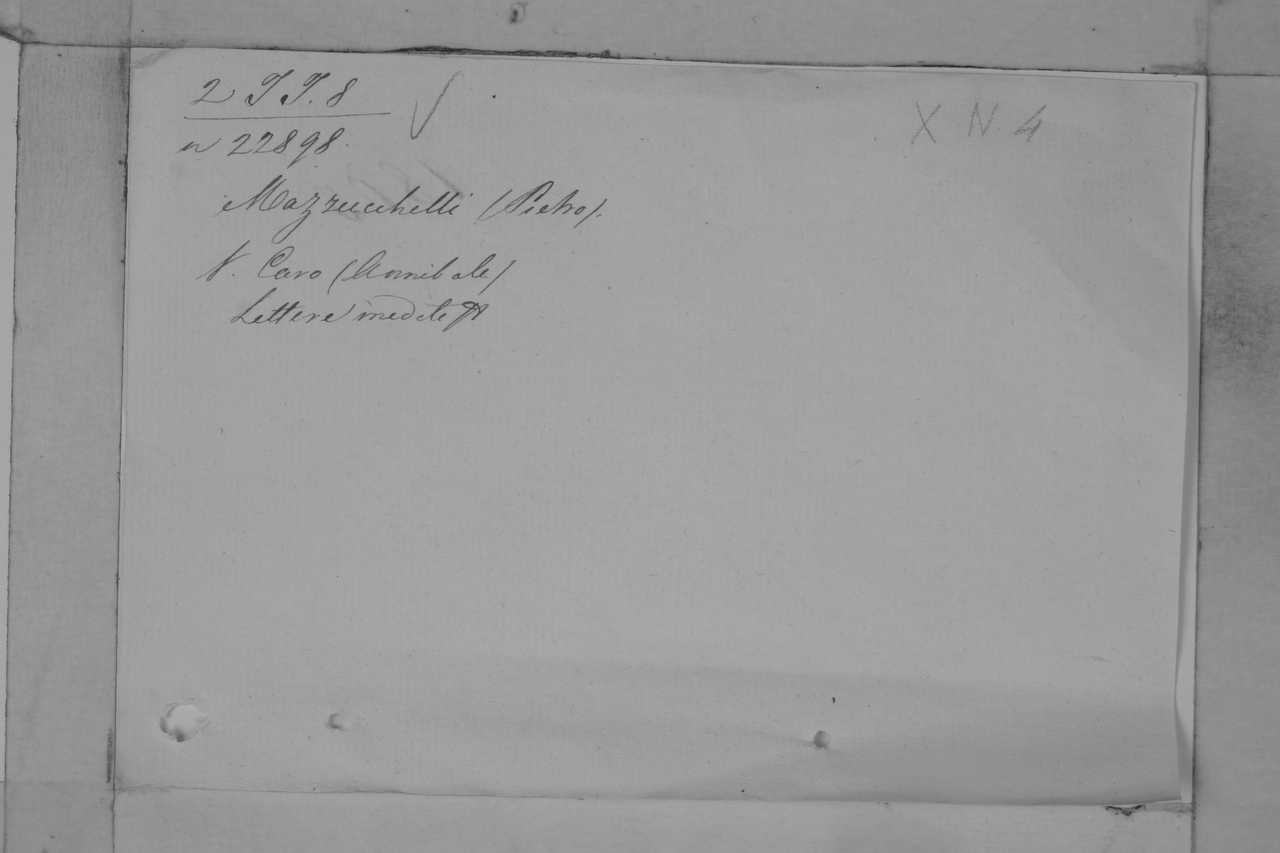 2 T T. 8
X N. 4
n 22898.
Mazzucchelli (Pietro).
V. Caro (Annibale)
Lettere inedite